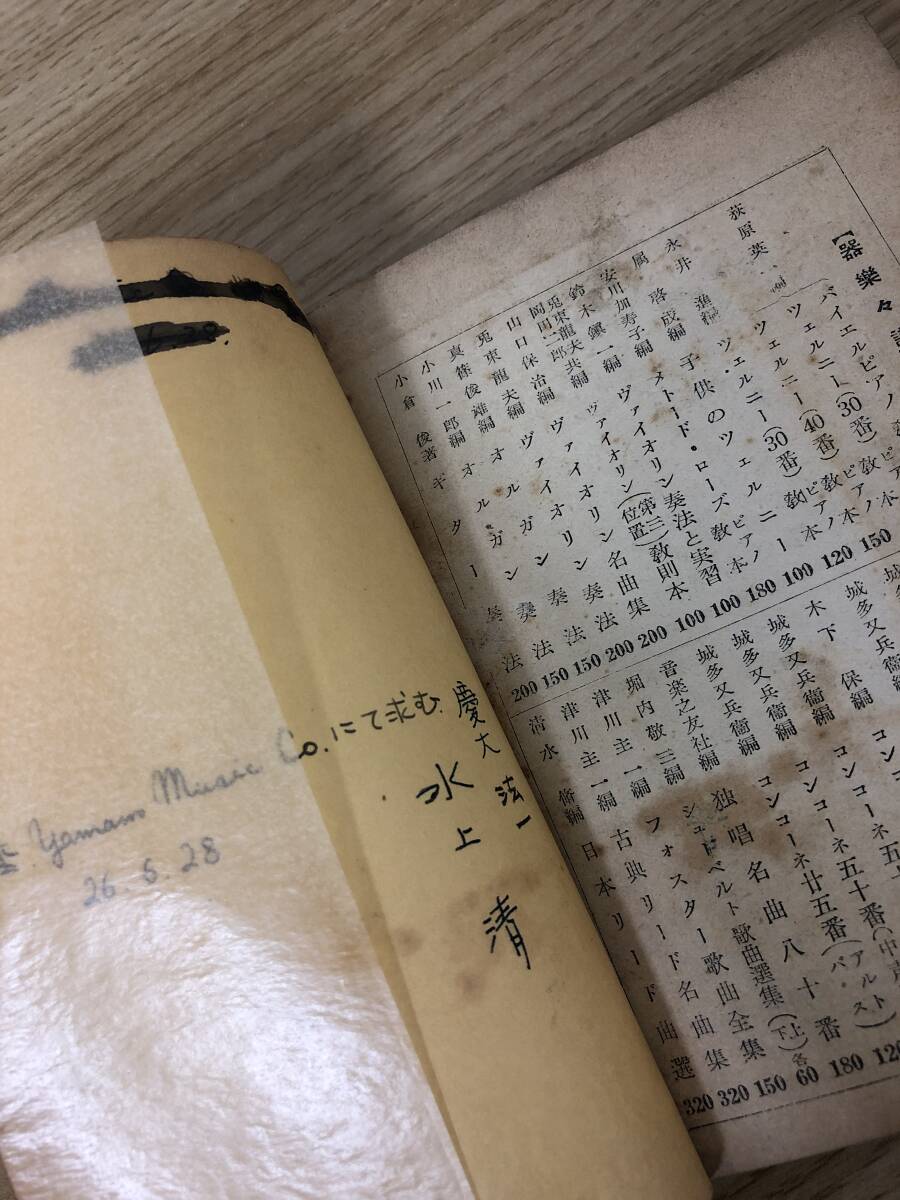 Yamano Music Co. にて求む.
26. 5. 28
慶大 法一
水上 清
【器樂々
バイエルピアノ教本 150
ツェルニー(30番)教ピアノ本 120
萩原英一編 ツェルニー(40番)教ピアノ本 100
ツェルニー(30番)教ピアノ本 180
永井 進編 子供のツェルニー 100
属 啓成編 メトード・ローズ教ピアノ本 100
安川加寿子編
鈴木鎮一編 ヴァイオリン奏法と実習 200
ヴァイオリン(第三位置)教則本 200
兎束龍夫 岡田二郎共編 ヴァイオリン名曲集
山口保治編 オルガン奏法 150
兎束龍夫編 ヴァイオリン奏法 150
真篠俊雄編 オルガン奏法
小川一郎編
小倉 俊著 ギター奏法 200
城多又兵衞編
城多又兵衞編 コンコーネ五十番(中声) 120
木下 保編 コンコーネ五十番(アルト) 180
城多又兵衞編 コンコーネ廿五番(バス) 60
城多又兵衞編 独唱名曲八十番
音楽之友社編 シューベルト歌曲選集(上下)各 150
堀内敬三編 フォスター歌曲全集 320
津川主一編 古典リード名曲集 320
清水 脩編 日本リード曲選